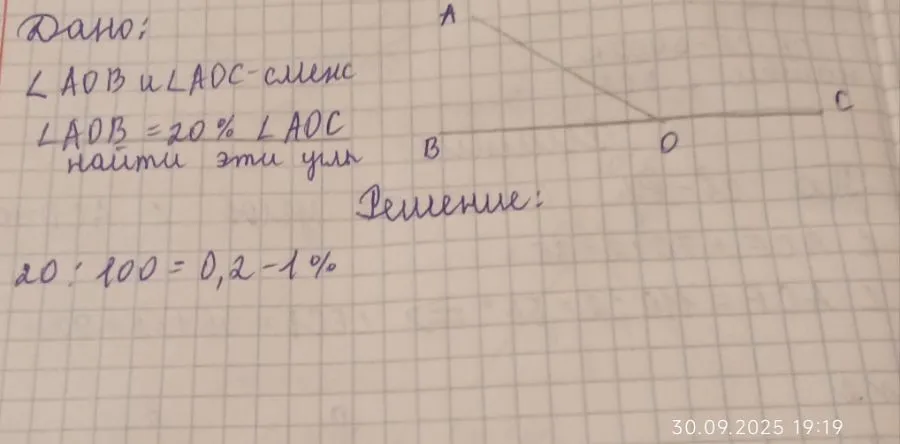 Дано:
∠AOB и ∠AOC-смежс
∠AOB = 20% ∠AOC
найти эти углы
A
C
B
O
Решение:
20 : 100 = 0,2 - 1%
30.09.2025 19:19